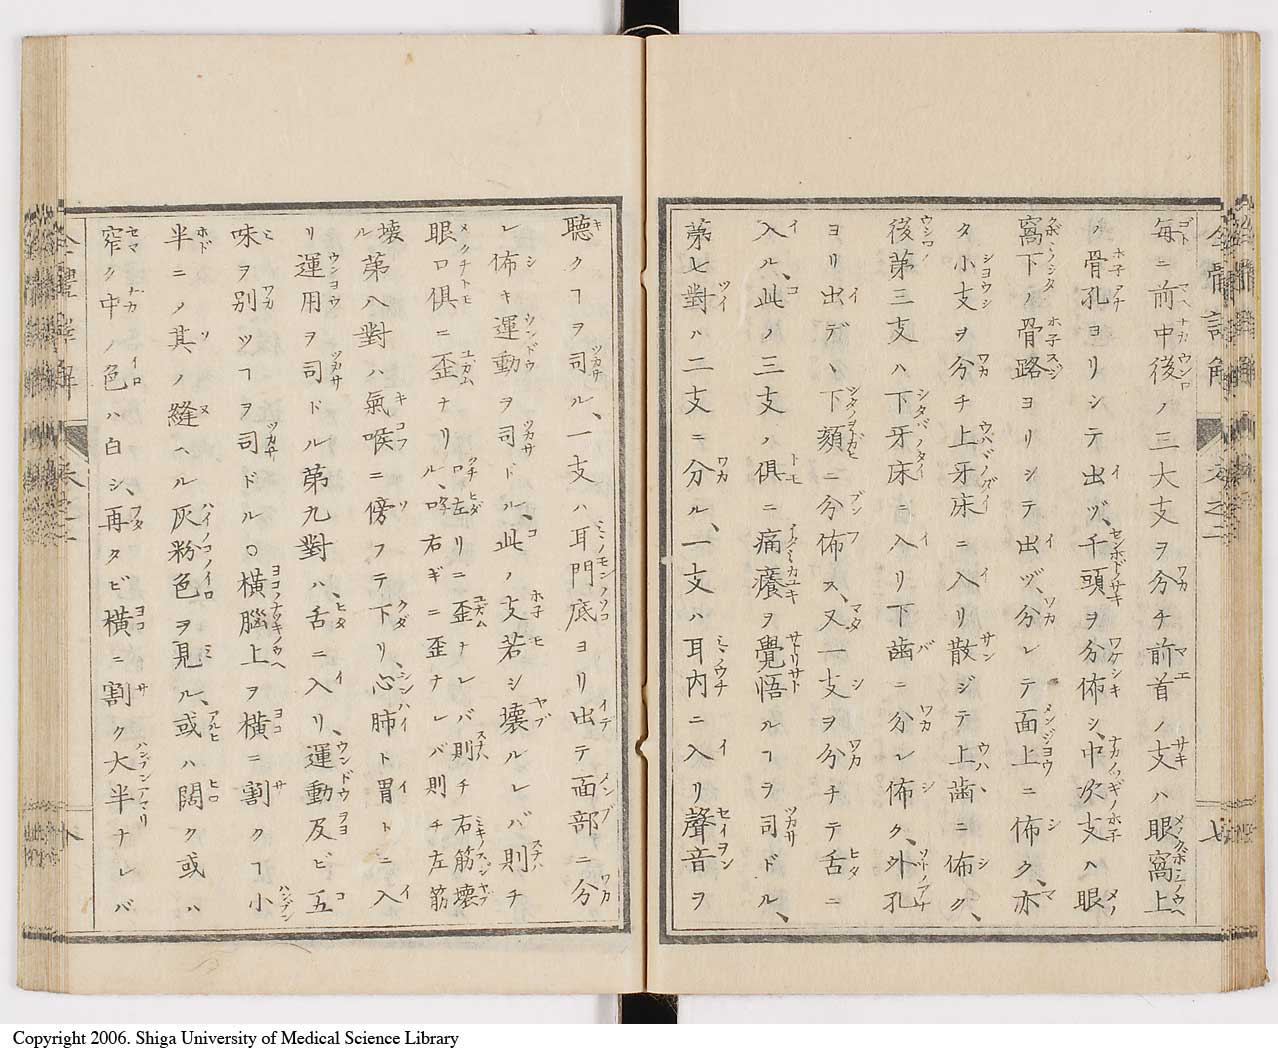 毎ニ前中後ノ三大支ヲ分チ前首ノ支ハ眼窩上
ノ骨孔ヨリシテ出ヅ、千頭ヲ分佈シ、中次支ハ眼
窩下ノ骨路ヨリシテ出ヅ、分レテ面上ニ佈ク、亦
タ小支ヲ分チ上牙床ニ入リ散ジテ上歯ニ佈ク、
後第三支ハ下牙床ニ入リ下歯ニ分レ佈ク、外孔
ヨリ出デヽ下頦ニ分佈ス、又一支ヲ分チテ舌ニ
入ル、此ノ三支ノ俱ニ痛癢ヲ覺悟ルヿヲ司ドル、
第七對ハ二支ニ分ル、一支ハ耳内ニ入リ聲音ヲ
聽クヿヲ司ル、一支ハ耳門底ヨリ出テ面部ニ分
レ佈キ運動ヲ司ドル、此ノ支若シ壊ルレバ則チ
眼口俱ニ歪ナリ 口左リニ歪ナレバ則チ右筋壊
ル、口右ギニ歪ナレバ則チ左筋
壊 第八對ハ氣喉ニ傍フテ下リ、心肺ト胃トニ入
リ運用ヲ司ドル第九對ハ、舌ニ入リ、運動及ビ五
味ヲ別ツヿヲ司ドル○横腦上ヲ横ニ割クヿ小
半ニメ其ノ縫ヘル灰粉色ヲ見ル、或ハ闊ク或ハ
窄ク中ノ色ハ白シ、再タビ横ニ割ク大半ナレバ
全體詳解
卷之二
七
八
Copyright 2006. Shiga University of Medical Science Library